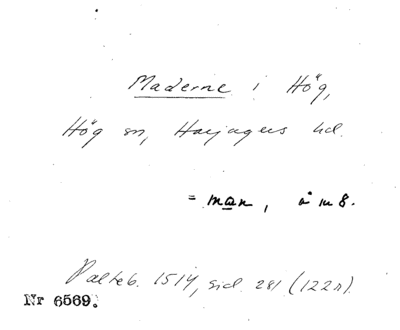 Maderne i Hög,
Hög sn, Harjagers hd.
= man, å m 8.
Palteb. 1514, sid. 281 (122r).
Nr 6569.